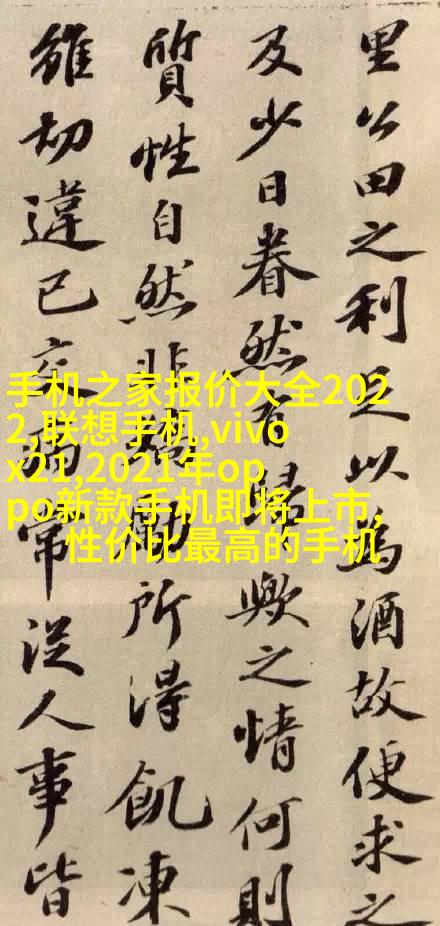 里公田之利足以為酒故便求之
及少日眷然有歸歟之情何則
質性自然非矯勵所得飢凍
雖切違己交病常從人事皆
手机之家报价大全202
2,联想手机,vivo
x21,2021年op
po新款手机即将上市,
性价比最高的手机